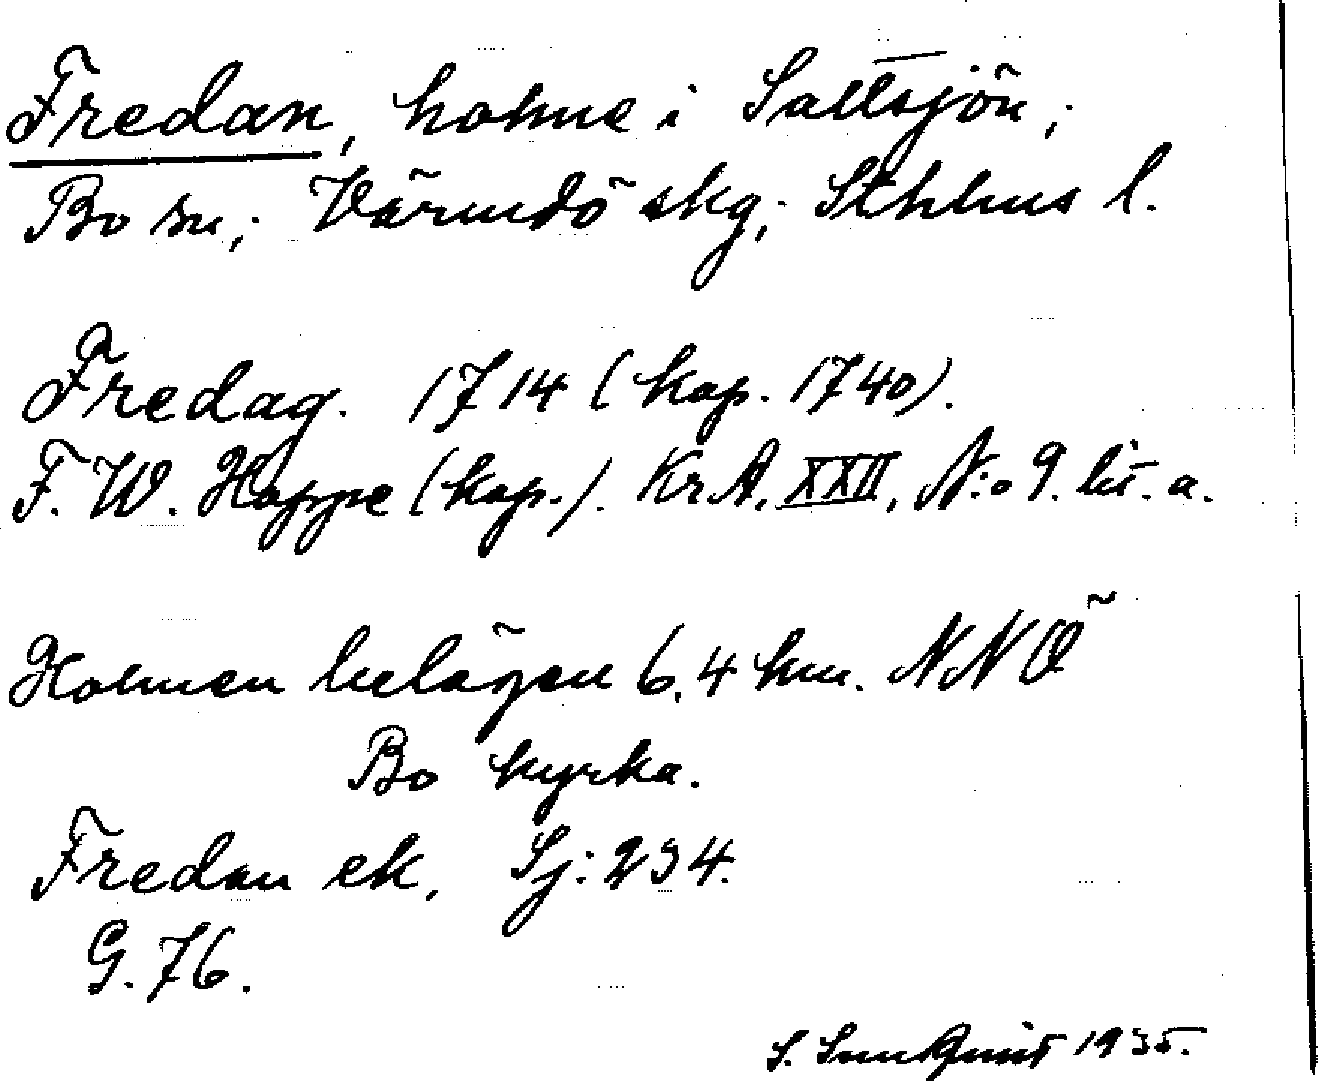 Fredan, holme i Saltsjön;
Bo sn; Värmdö skg; Sthlms l.
Fredag. 1714 (kop. 1740).
F. W. Hoppe (kop.). Kr A. XXII, N:o 9. lit. a.
Holmen belägen 6,4 km. NNÖ
Bo kyrka.
Fredan ek. Sj: 234.
G. 76.
S. Sundquist 1935.